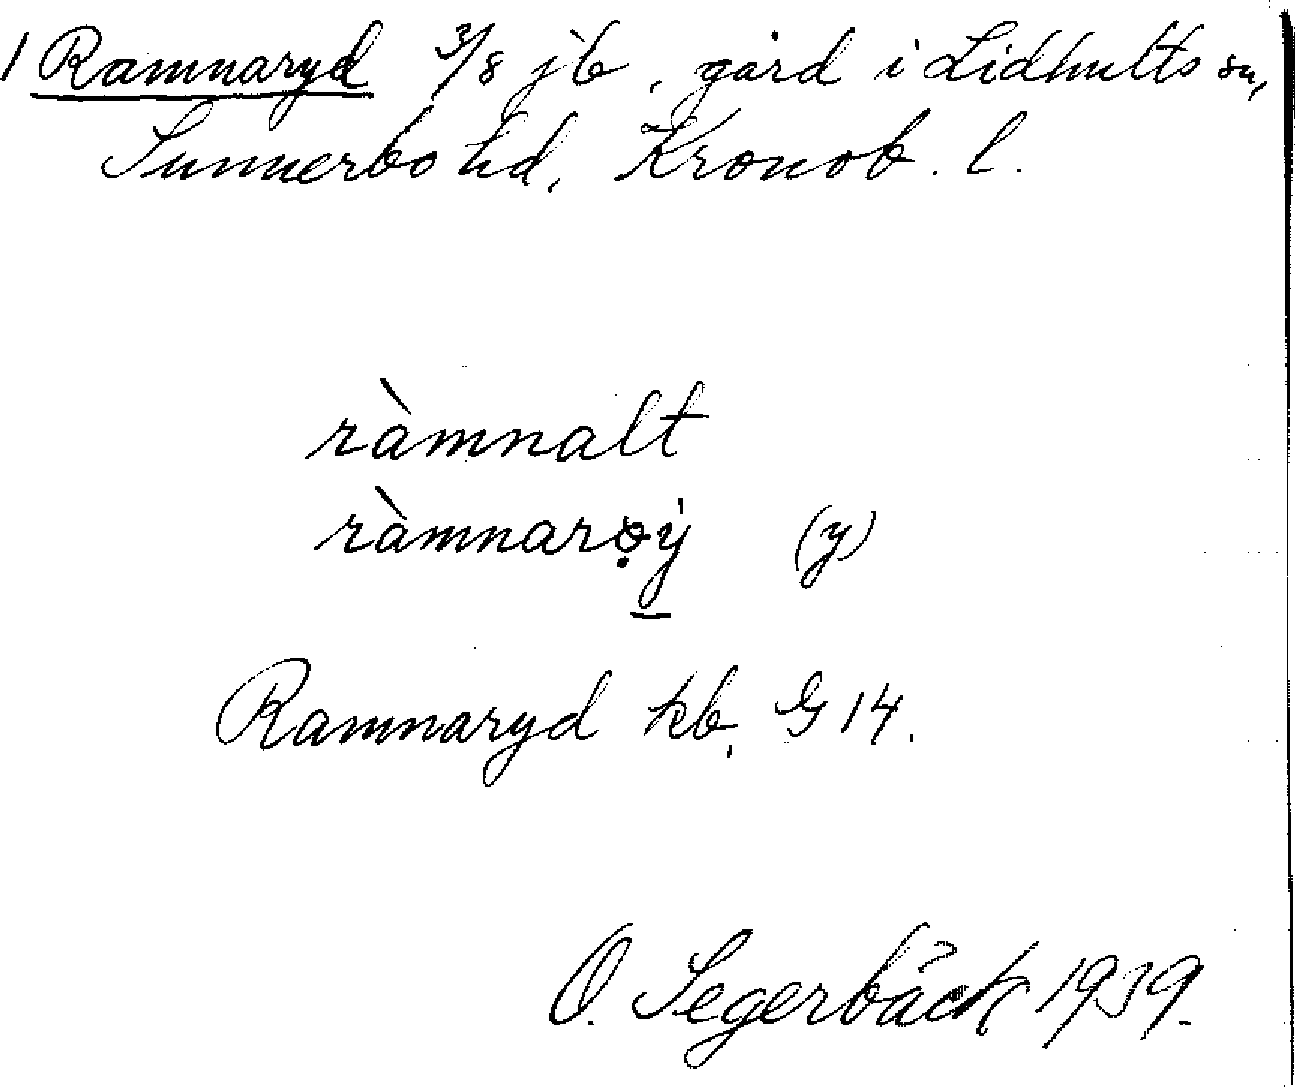 1 Ramnaryd 3/8 jb, gård i Lidhults sn,
Sunnerbo hd, Kronob. l.
ràmnalt
ràmnarọẏ (y)
Ramnaryd kb, G 14.
O. Segerbäck 1939.